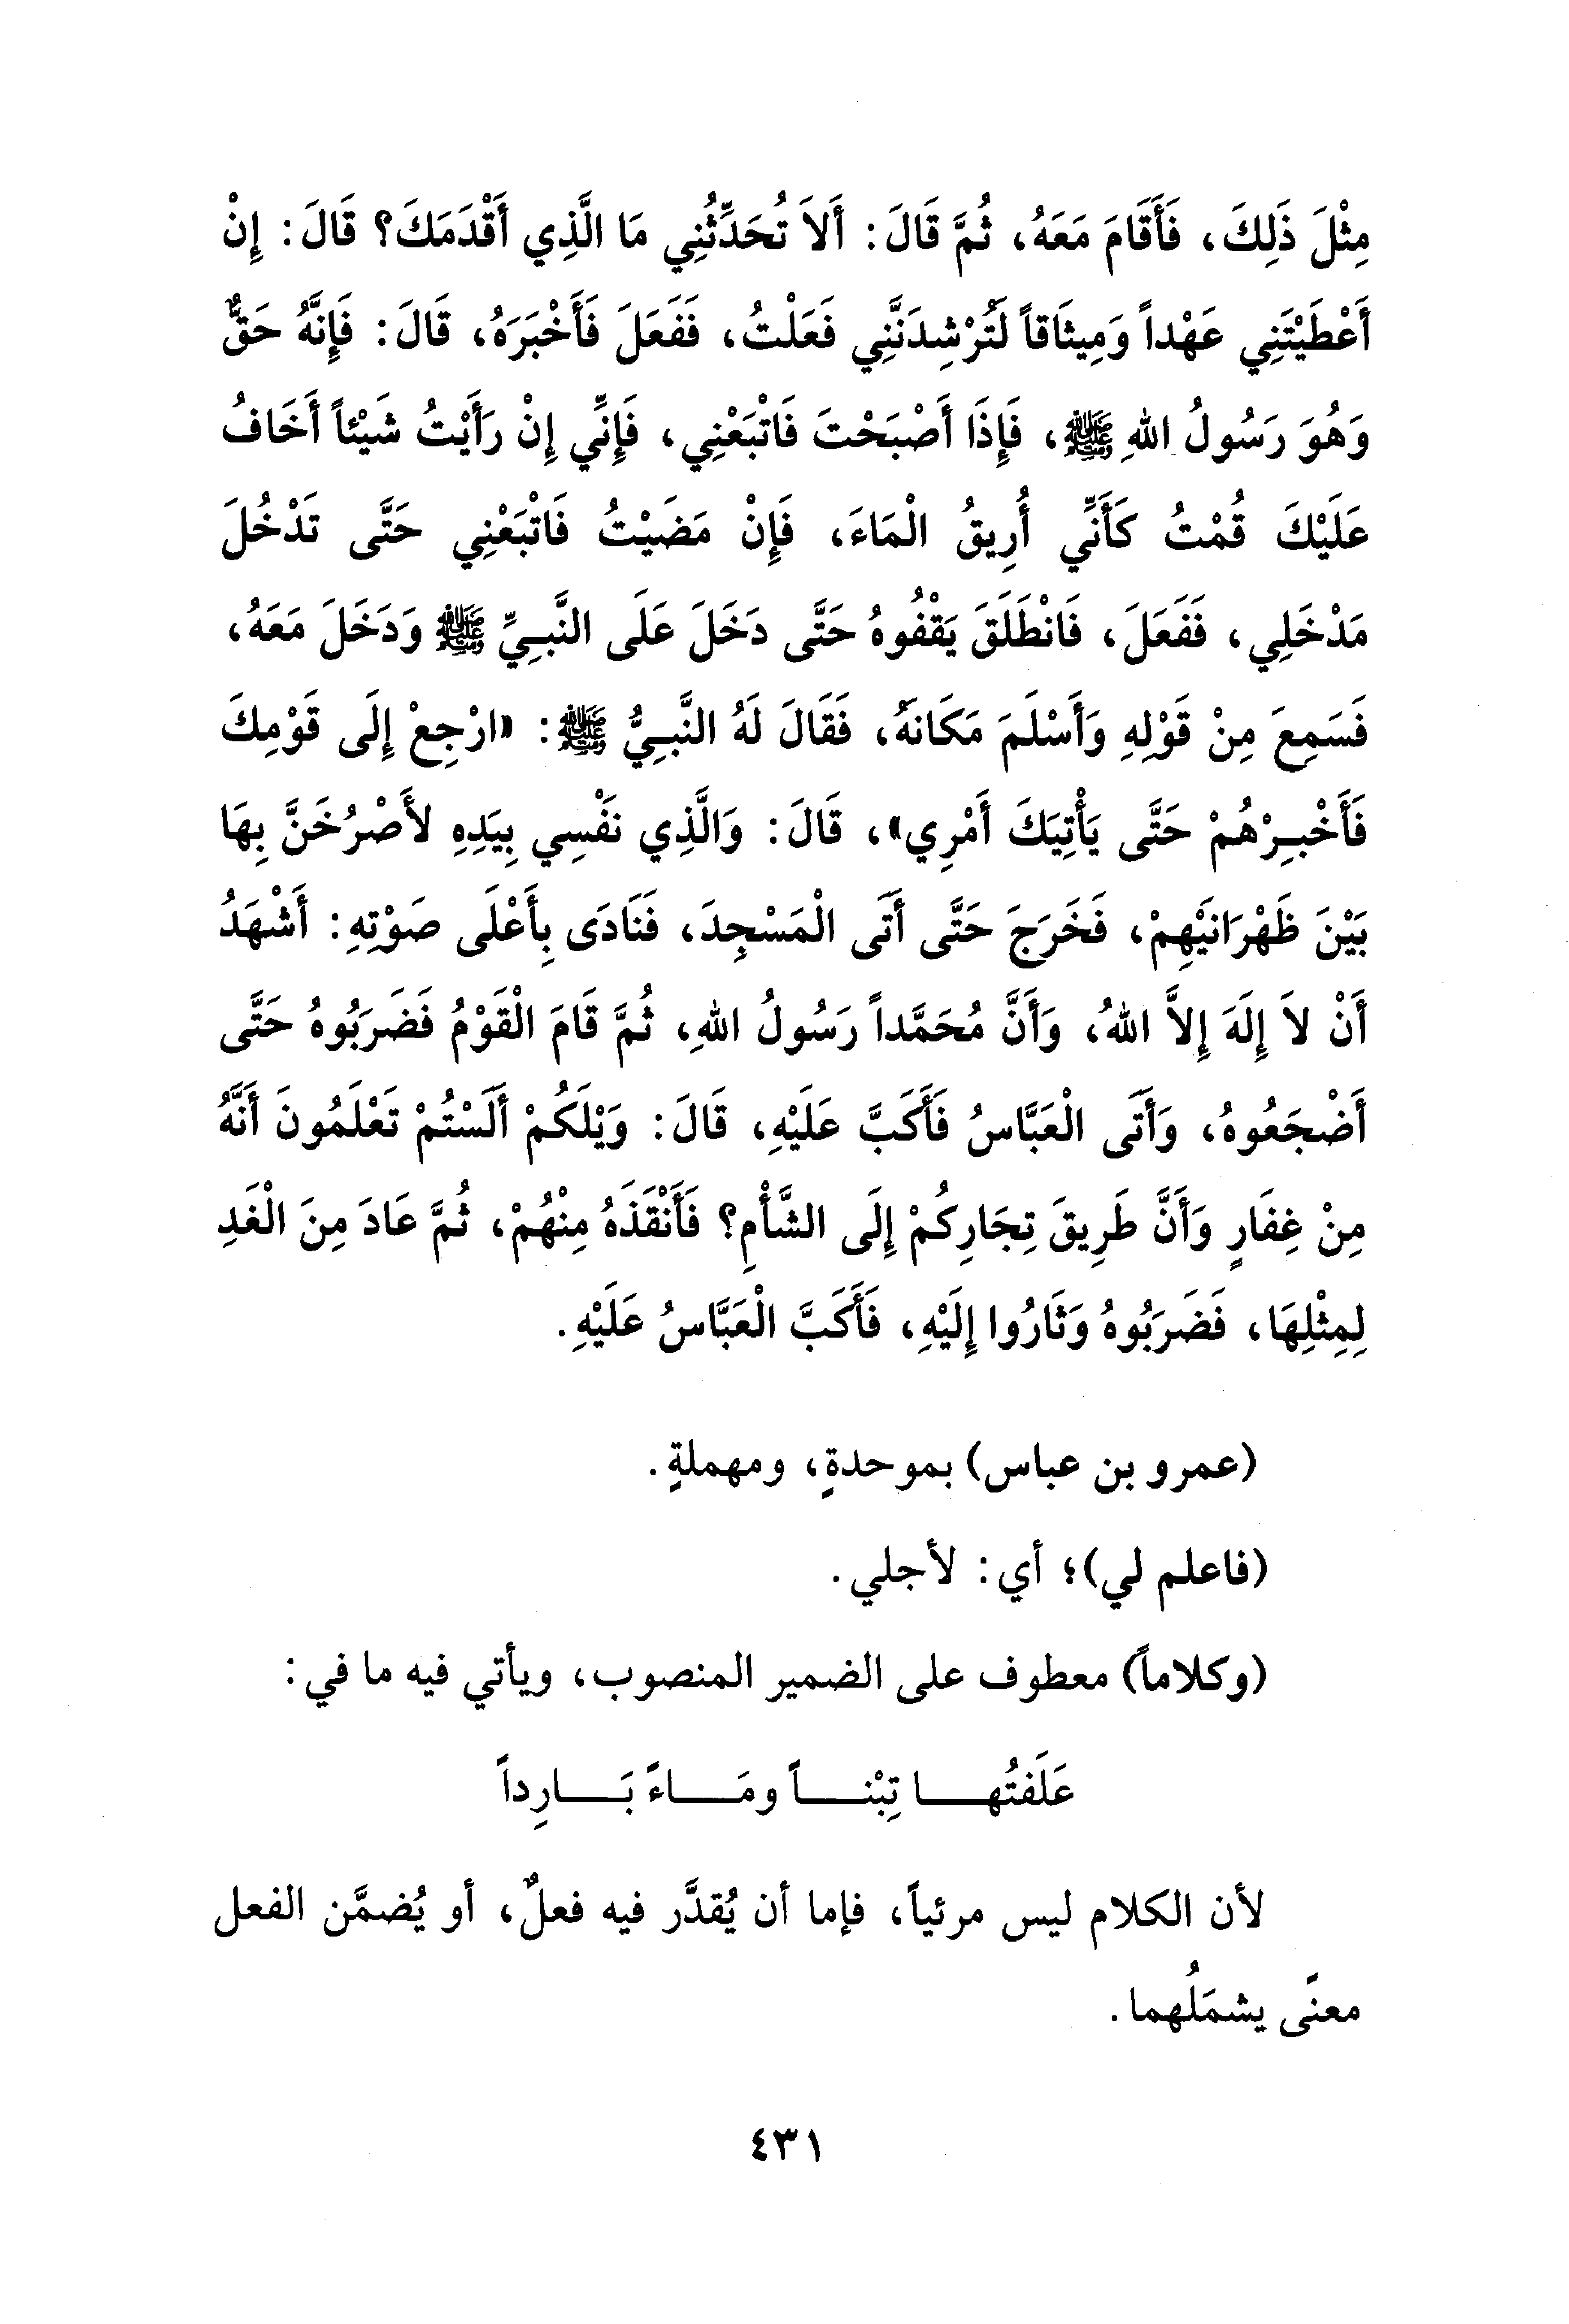 مِثْلَ ذَلِكَ، فَأَقَامَ مَعَهُ، ثُمَّ قَالَ: أَلاَ تُحَدِّثُنِي مَا الَّذِي أَقْدَمَكَ؟ قَالَ: إِنْ
أَعْطَيْتَنِي عَهْداً وَمِيثَاقاً لَتُرْشِدَنَّنِي فَعَلْتُ، فَفَعَلَ فَأَخْبَرَهُ، قَالَ: فَإِنَّهُ حَقٌّ
وَهُوَ رَسُولُ اللهِ ﷺ، فَإِذَا أَصْبَحْتَ فَاتْبَعْنِي، فَإِنِّي إِنْ رَأَيْتُ شَيْئاً أَخَافُ
عَلَيْكَ قُمْتُ كَأَنِّي أُرِيقُ الْمَاءَ، فَإِنْ مَضَيْتُ فَاتْبَعْنِي حَتَّى تَدْخُلَ
مَدْخَلِي، فَفَعَلَ، فَانْطَلَقَ يَقْفُوهُ حَتَّى دَخَلَ عَلَى النَّبِيِّ ﷺ وَدَخَلَ مَعَهُ،
فَسَمِعَ مِنْ قَوْلِهِ وَأَسْلَمَ مَكَانَهُ، فَقَالَ لَهُ النَّبِيُّ ﷺ: «ارْجِعْ إِلَى قَوْمِكَ
فَأَخْبِرْهُمْ حَتَّى يَأْتِيَكَ أَمْرِي»، قَالَ: وَالَّذِي نَفْسِي بِيَدِهِ لأَصْرُخَنَّ بِهَا
بَيْنَ ظَهْرَانَيْهِمْ، فَخَرَجَ حَتَّى أَتَى الْمَسْجِدَ، فَنَادَى بِأَعْلَى صَوْتِهِ: أَشْهَدُ
أَنْ لاَ إِلَهَ إِلاَّ اللهُ، وَأَنَّ مُحَمَّداً رَسُولُ اللهِ، ثُمَّ قَامَ الْقَوْمُ فَضَرَبُوهُ حَتَّى
أَضْجَعُوهُ، وَأَتَى الْعَبَّاسُ فَأَكَبَّ عَلَيْهِ، قَالَ: وَيْلَكُمْ أَلَسْتُمْ تَعْلَمُونَ أَنَّهُ
مِنْ غِفَارٍ وَأَنَّ طَرِيقَ تِجَارِكُمْ إِلَى الشَّأْمِ؟ فَأَنْقَذَهُ مِنْهُمْ، ثُمَّ عَادَ مِنَ الْغَدِ
لِمِثْلِهَا، فَضَرَبُوهُ وَثَارُوا إِلَيْهِ، فَأَكَبَّ الْعَبَّاسُ عَلَيْهِ.
(عمرو بن عباس) بموحدةٍ، ومهملةٍ.
(فاعلم لي)؛ أي: لأجلي.
(وكلاماً) معطوف على الضمير المنصوب، ويأتي فيه ما في:
عَلَفتُهـــا تِبْنـــاً ومَـــاءً بَـــارِداً
لأن الكلام ليس مرئياً، فإما أن يُقدَّر فيه فعلٌ، أو يُضمَّن الفعل
معنًى يشمَلُهما.
٤٣١